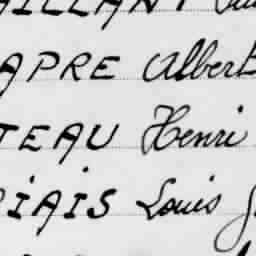 AILLANT
APRE Albert
TEAU Henri
RIAIS Louis